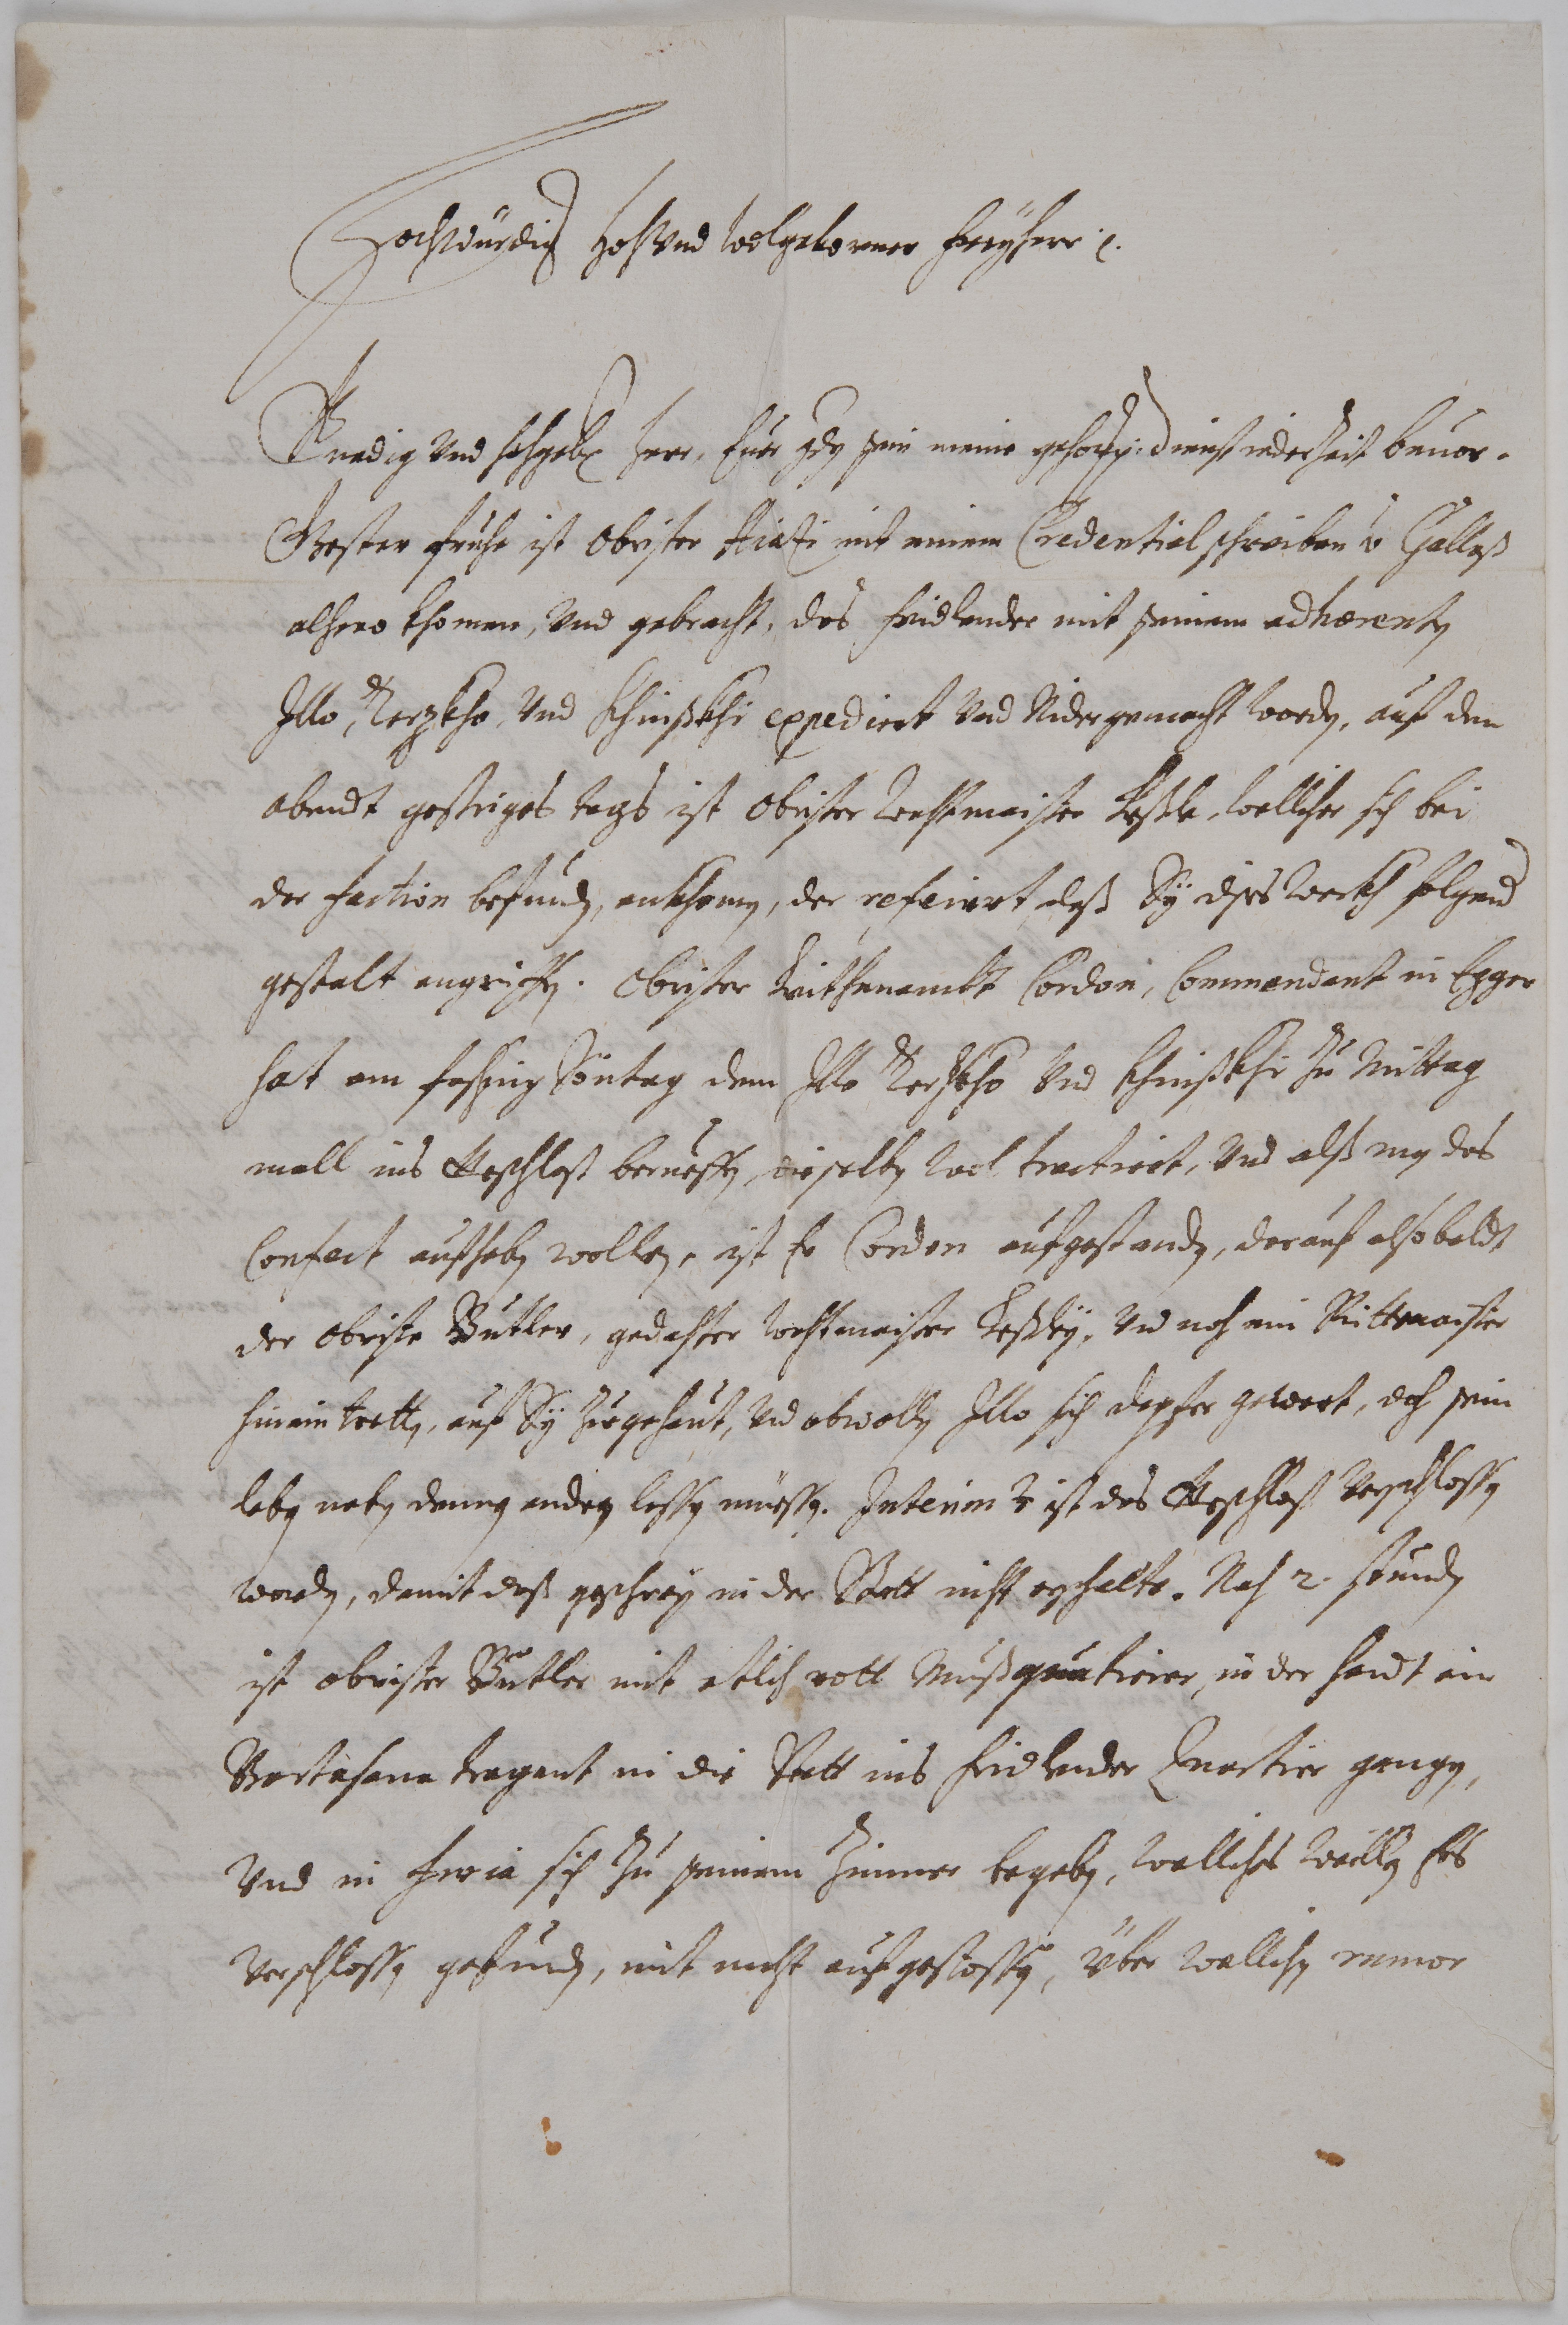 Hochwürdig Hoch Vnd Wolgeborner Freyherr ꝛc.
Gnedig Vnd hochgeb: Herr, Euer Gdn sein meine gehors: dienst iederzeit beuor.
Gester fruhe ist Obrister mit einem Credential schreiben v Gallaß
alhero khomen, Vnd gebracht, das Fridlander mit seinem adhærenten
Illo, Terzkho, Vnd Khinßkhi expediert Vnd Nidergemacht worden, auf den
abendt gestriges tags ist Obrister Wachtmaister Leßle, wellicher sich bei
der faction befunden, ankhomen, der referiert daß Sÿ dises werkh folgend
gestalt angriffen. Obrister Leithenambt Gordon, Commendant in Egger
hat am fasching Sontag dem Illo Terzkho Vnd Khinßkhi zu Mittag
mall ins Gschloß berueffen, dieselben wol tractiert, Vnd alß man das
Confect aufheben wollen, ist Er Gordon aufgestanden, darauf alsobaldt
der Obriste Buttler, gedachter Wachtmaister Leßley, Vnd noch ein Rittmaister
hinein tretten, auf Sÿ zuegehaut, Vnd obwollen Illo sich dapfer gewert, doch sein
leben neben denen andern lassen müessen. Interim ist das Gschloß Verschlossen
worden, damit daß geschrey in der Statt nicht erschalte. Nach 2. stunden
ist obrister Buttler mit etlich rott Mußquatierer, in der handt ein
Partesana tragent in die Statt ins Fridlander Quartier gangen,
Vnd in furia sich zu seinem Zimmer begeben, welliches weillen Ers
Verschlossen gefunden, mit macht aufgestossen, Über wellichen rumor